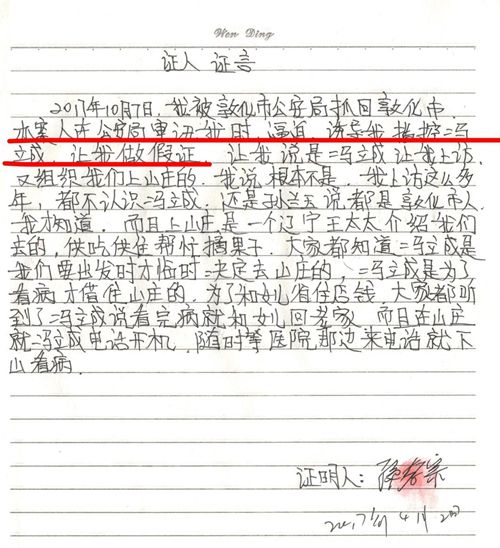 Wen Ding
证人 证言
2017年10月7日,我被敦化市公安局抓回敦化市
办案人在公安局审讯我时,逼迫、诱导我指挪冯
立成,让我做假证。让我说是冯立成让我上访,
又组织我们上山庄的。我说根本不是,我上访这么多
年,都不认识冯立成,还是孙兰玉说都是敦化市人
我才知道。而且上山庄是一个辽宁王太太介绍我们
去的,供吃供住帮忙摘果子。大家都知道冯立成是
我们要出发时才临时决定去山庄的,冯立成是为了
看病才借住山庄的。为了和女儿省住店钱 大家都听
到了冯立成说看完病就和女儿回老家 而且在山庄
就冯立成电话开机,随时等医院那边来电话就下
山看病。
证明人: